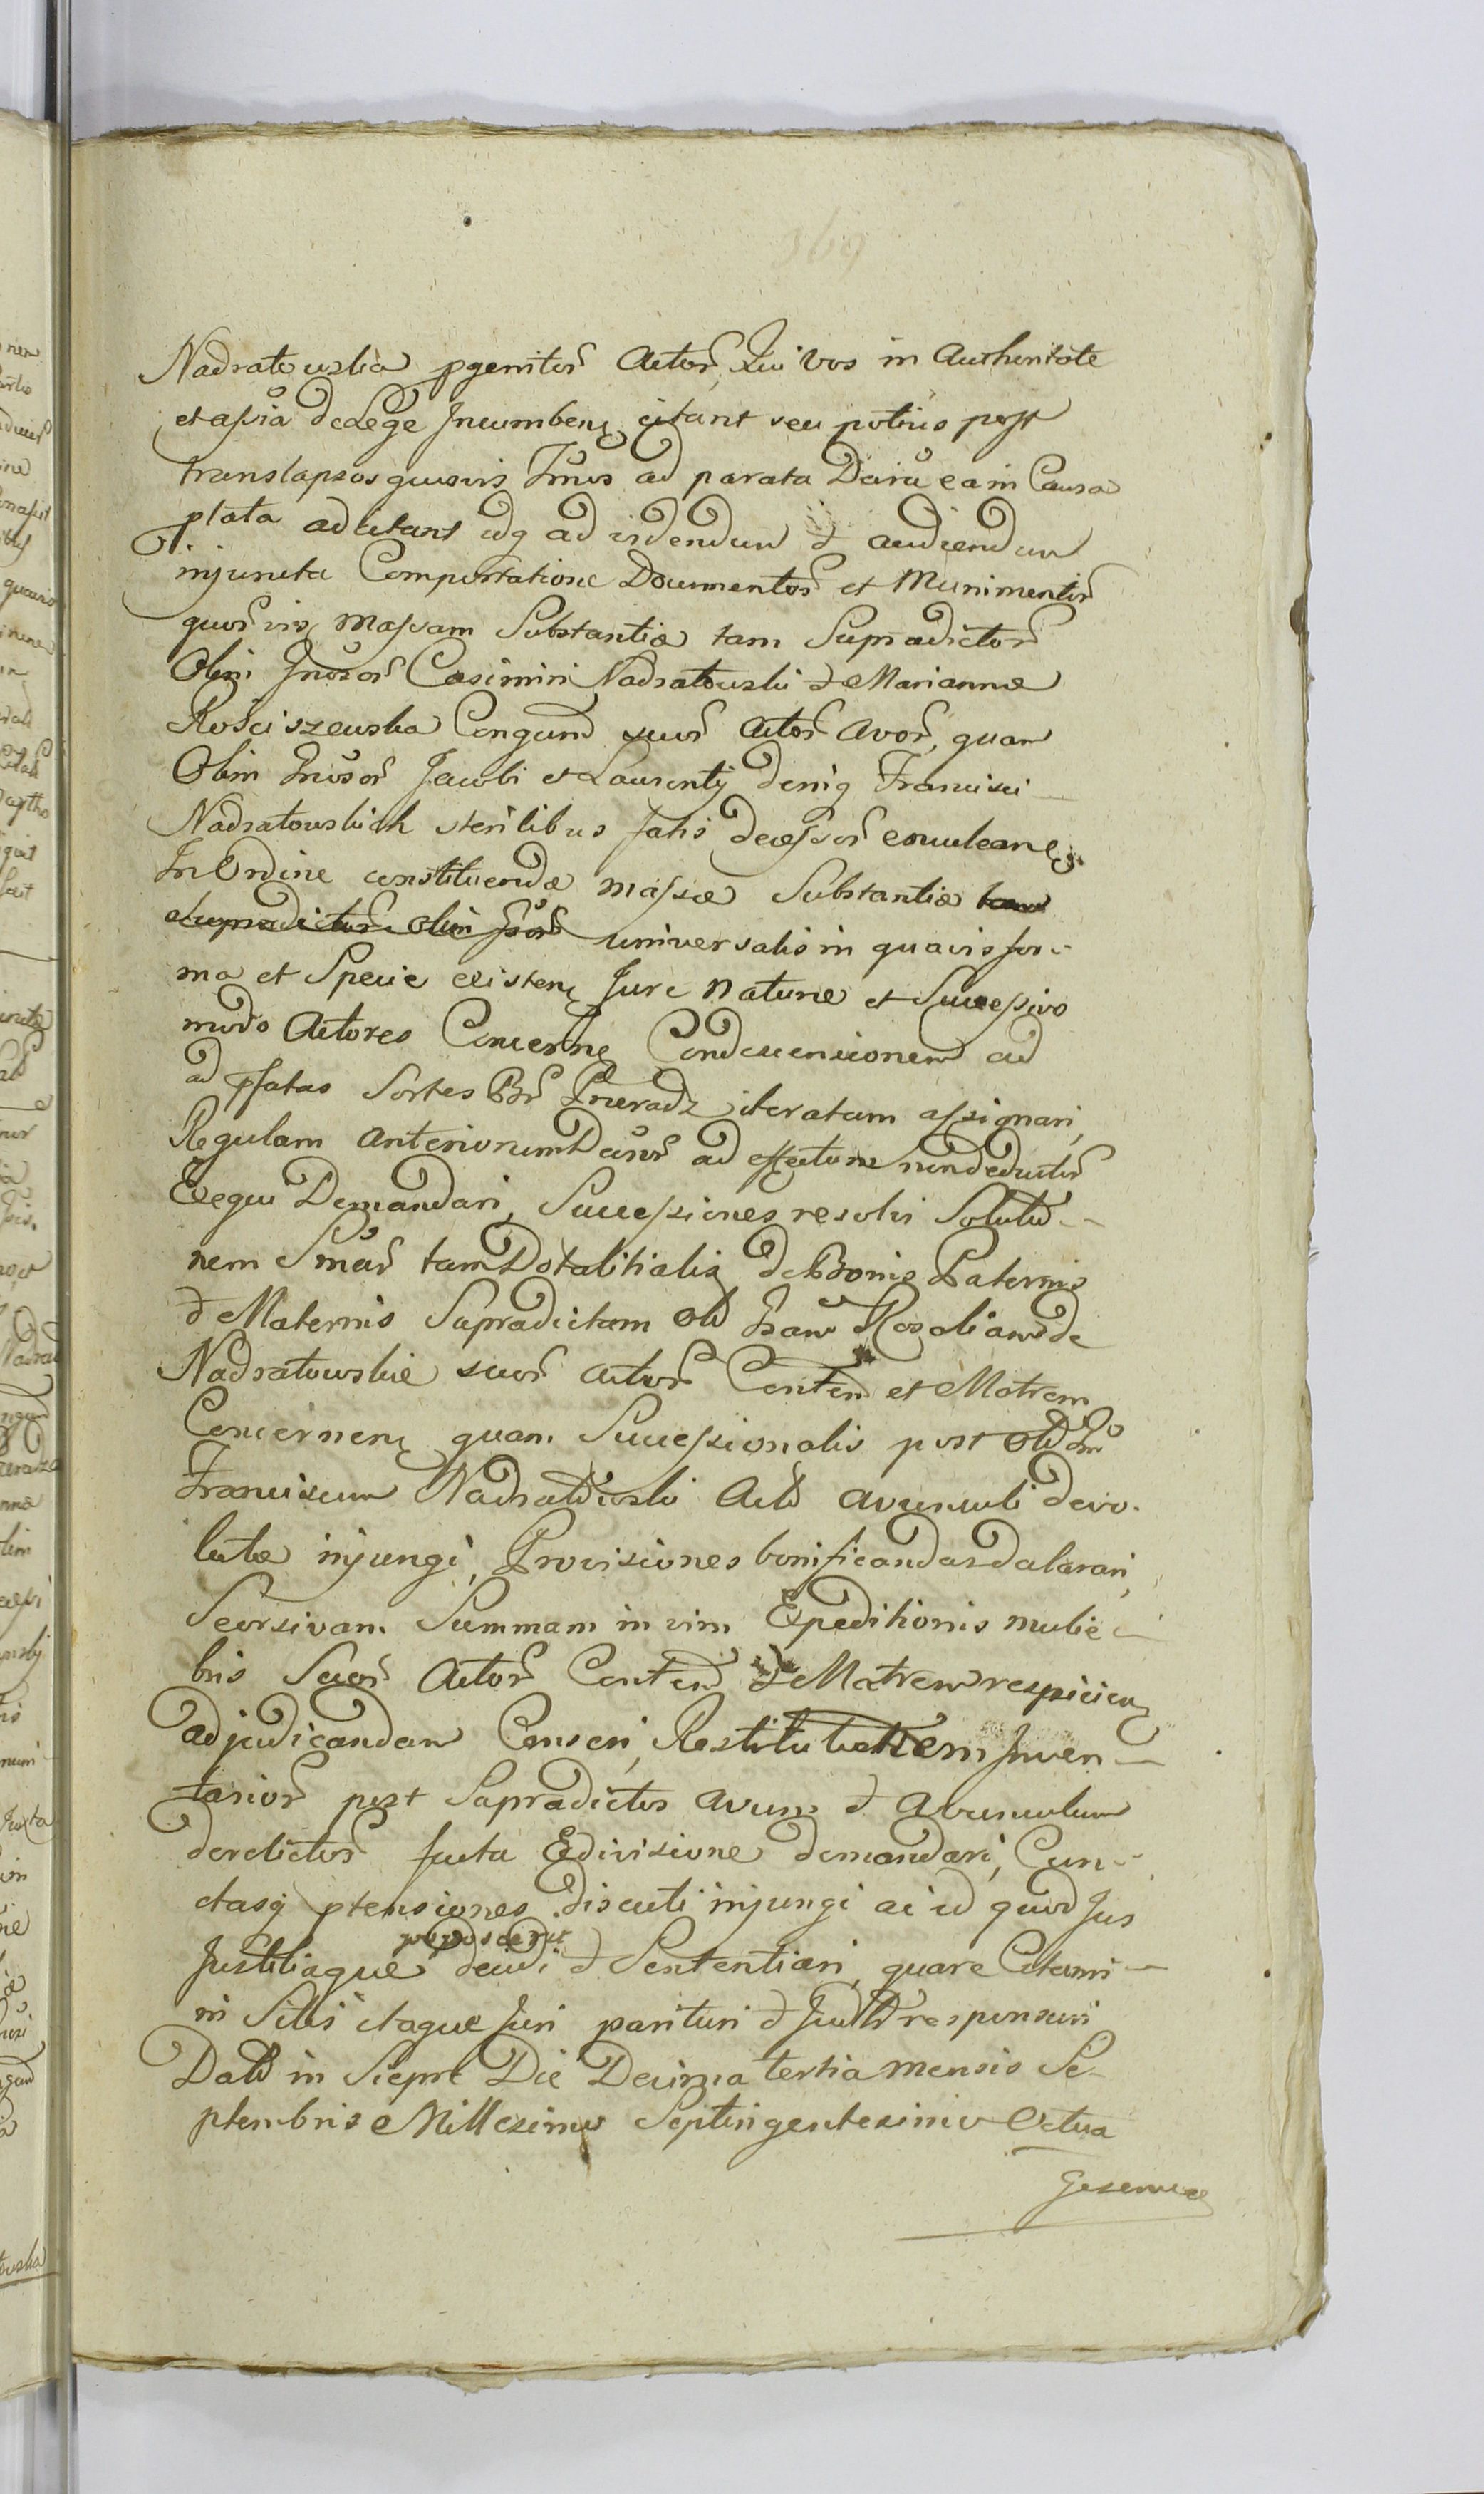 369
Nadratowska pgenitor Actor, Qui Vos in Authoritate
et assia de Lege Incumben citant seu potius post
translapsos quosvis Tmos ad parata Decra ea in Causa
plata adcitant idq ad videndum & audiendum
injuncta Comportatione Documentor et Munimentor
quorvis Massam Substantiæ tam Supradictor
Olim Gnosor Casimiri Nadratowski & Mariannæ
Rościszewska Conjund suor Actor Avor, quam
Olim Gnosor Jacobi et Laurentij deniq Francisci
Nadratowskich sterilibus fatis decessor enuclean
In Ordine constituendæ massæ Substantiæ tam
Supradictor Olim universalis in quavis for-
ma et Specie existen Jure Naturæ et Successivo
modo Actores Concernen Condescensionem ad
ad pfatas Sortes Bor iteratam assignari,
Regulam anteriorum Decror ad effectum nondeductor
Exequi Demandari, Successiones resolvi Solutio-
nem Smar tam Dotalitialis de Bonis Paternis
& Maternis Supradictam Old Rosaliam de
Nadratowskie suor Actor Conten et Matrem
Concernen quam Successionalis post Old
Franciscum Nadratowski Actor avunculi devo-
lutæ injungi, Provisiones bonificandas dalarari,
Seorsivam Summam in vim Expeditionis mulie-
bris Suor Actor Conten & Matrem respicien
adjudicandam Censeri, Restitutionem Inven-
tarior post Supradictos Avum & Avunculum
derelictor facta Edivisione demandari, Cun-
ctasq ptensiones discuti injungi ac id quod Jus
Justitiaque poposcerit decidi & Sententiari, quare Citami-
ni Sitis itaque Juri parituri & Judtr responsuri
Datt in Sieprc Die Decima tertia mensis Se-
ptembris Millesimo Septingentesimo Octua
Gesimo